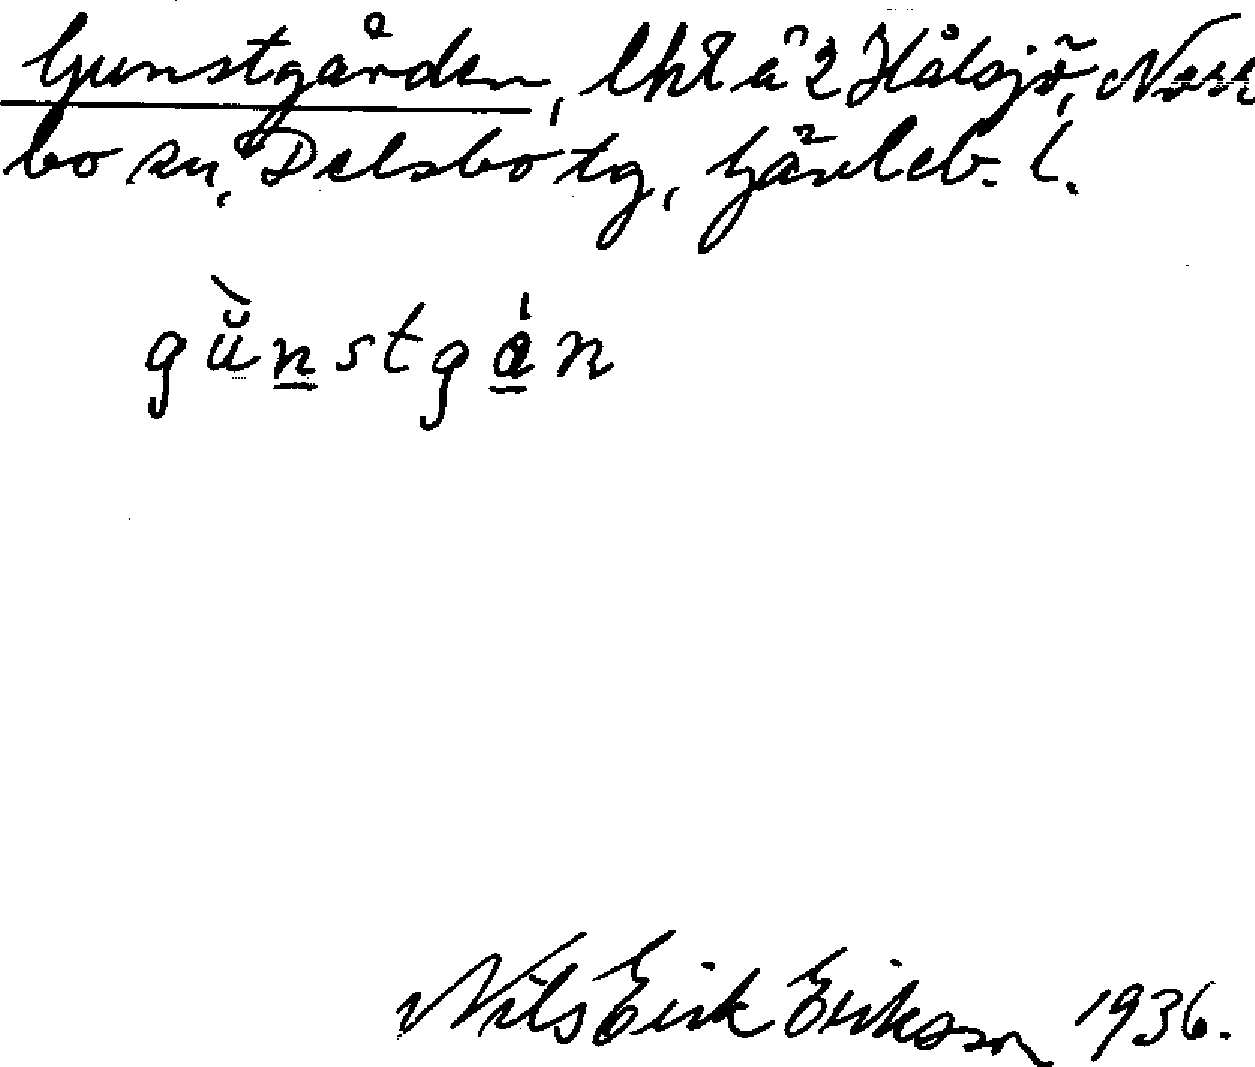 Gunstgården, lht å 2 Hålsjö, Norr
bo sn, Delsbo tg, Gävleb. l.
gù̯nstgan
Nils Erik Eriksson 1936.